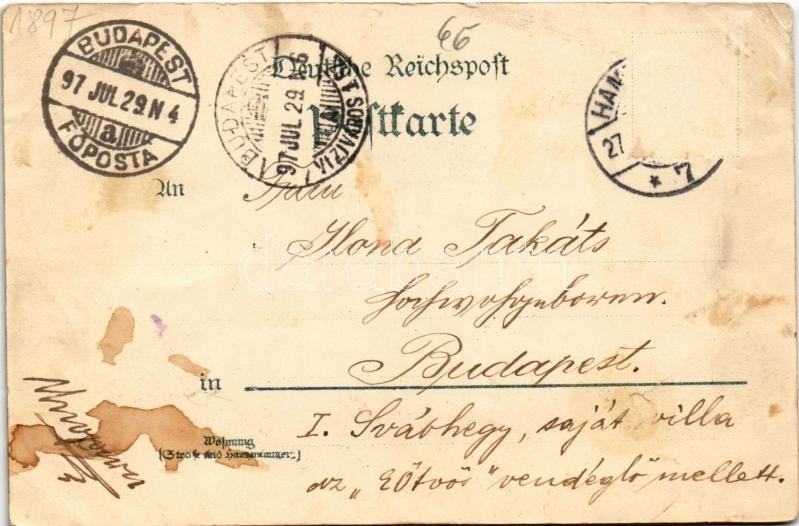 1897
66
BUDAPEST
97 JUL. 29. N 4
a
FŐPOSTA
BUDAPEST
97 JUL. 29.
Deutsche Reichspost
Postkarte
HAA
27
* 7
An
Frau
Ilona Takáts
Hochwohgeboren.
in
Budapest.
Wohnung
(Straße und Hausnummer)
I. Svábhegy, saját villa
az „Eötvös" vendéglő mellett.
darabanth